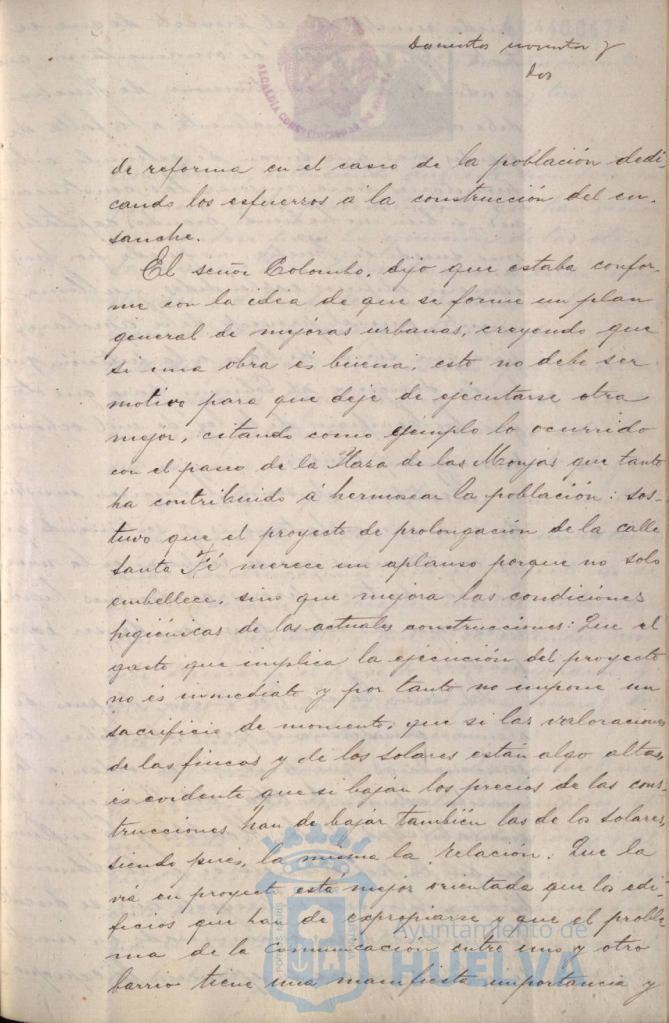 Doscientos noventa y
dos
ALCALDÍA CONSTITUCIONAL DE
de reforma en el casco de la población dedi-
cando los esfuerzos á la construcción del en-
sanche.
El señor Colombo, dijo que estaba confor-
me con la idea de que se forme un plan
general de mejoras urbanas, creyendo que
si una obra es buena, esto no debe ser
motivo para que deje de ejecutarse otra
mejor, citando como ejemplo lo ocurrido
con el paseo de la Plaza de las Monjas que tanto
ha contribuido á hermosear la población: sos-
tuvo que el proyecto de prolongación de la calle
Santa Fé merece un aplauso porque no solo
embellece, sino que mejora las condiciones
higiénicas de las actuales construcciones: Que el
gasto que implica la ejecución del proyecto
no es inmediato y por tanto no impone un
sacrificio de momento; que si las valoraciones
de las fincas y de los solares están algo altas,
es evidente que si bajan los precios de las cons-
trucciones han de bajar también las de los solares,
siendo pues, la misma la relación. Que la
vía en proyecto está mejor orientada que los edi-
ficios que han de expropiarse y que el proble-
ma de la comunicación entre uno y otro
barrio tiene una manifiesta importancia y
Ayuntamiento de
HUELVA